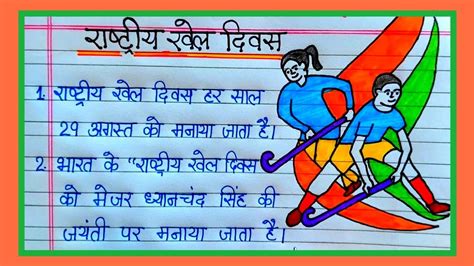 राष्ट्रीय खेल दिवस
1. राष्ट्रीय खेल दिवस हर साल
29 अगस्त को मनाया जाता है।
2. भारत के "राष्ट्रीय खेल दिवस
को मेजर ध्यानचंद सिंह की
जयंती पर मनाया जाता है।